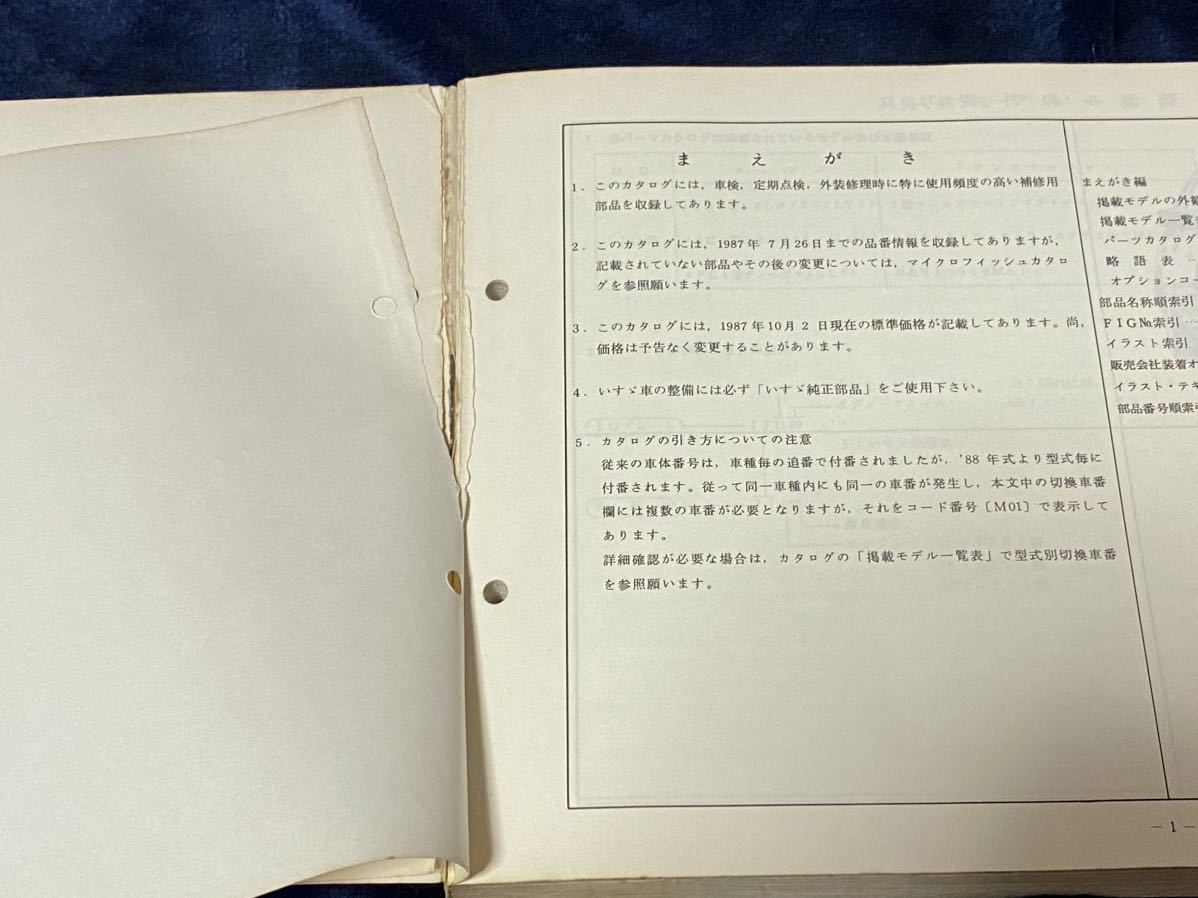 まえがき
1．このカタログには，車検，定期点検，外装修理時に特に使用頻度の高い補修用
部品を収録してあります。
2．このカタログには，1987年 7月26日までの品番情報を収録してありますが，
記載されていない部品やその後の変更については，マイクロフィッシュカタロ
グを参照願います。
3．このカタログには，1987年10月2 日現在の標準価格が記載してあります。尚，
価格は予告なく変更することがあります。
4．いすゞ車の整備には必ず「いすゞ純正部品」をご使用下さい。
5．カタログの引き方についての注意
従来の車体番号は，車種毎の追番で付番されましたが，'88 年式より型式毎に
付番されます。従って同一車種内にも同一の車番が発生し，本文中の切換車番
欄には複数の車番が必要となりますが，それをコード番号〔M01〕で表示して
あります。
詳細確認が必要な場合は，カタログの「掲載モデル一覧表」で型式別切換車番
を参照願います。
まえがき編
掲載モデルの外観
掲載モデル一覧表
パーツカタログ
略語表 …
オプションコー
部品名称順索引
FIG№索引 ……
イラスト索引
販売会社装着オ
イラスト・テキ
部品番号順索引
－1－